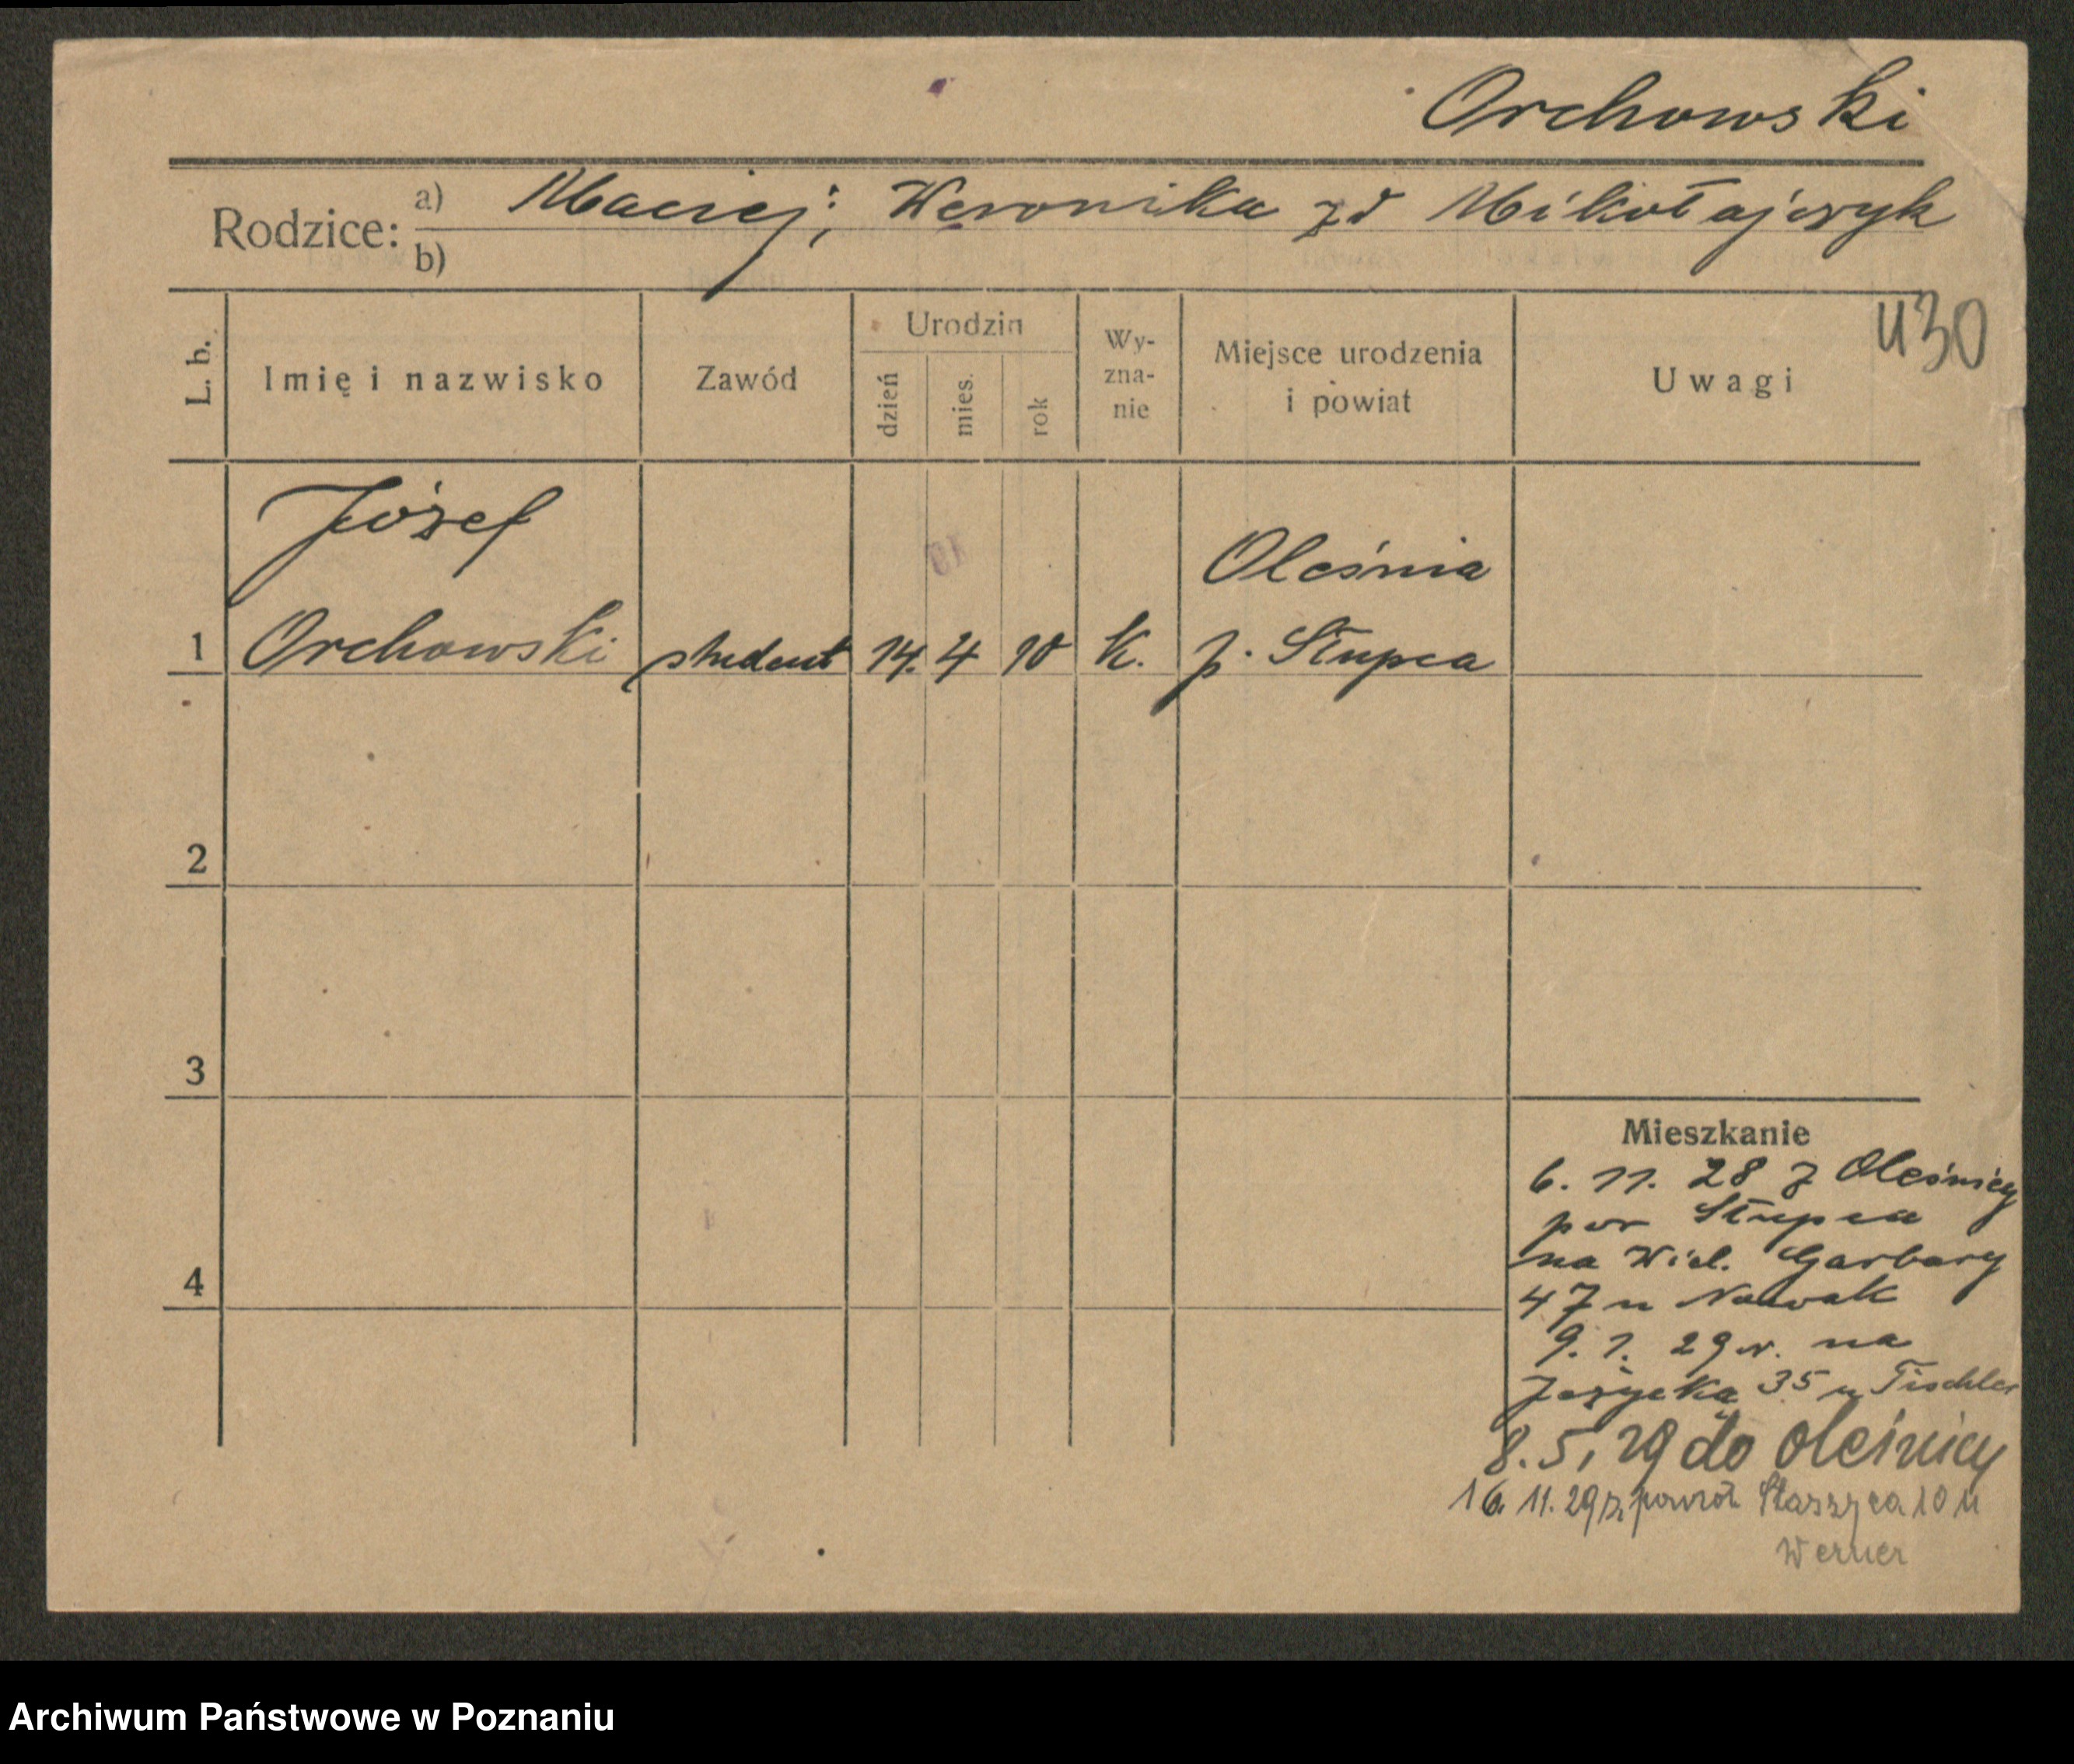 Orchowski
Rodzice: a) Maciej; Weronika zd Mikołajczyk
b)
L. b. Imię i nazwisko Zawód Urodzin dzień mies. rok Wy- zna- nie Miejsce urodzenia i powiat Uwagi
430
Józef
Oleśnia
1 Orchowski student 14. 4 10 k. p. Słupca
2
3
Mieszkanie
6. 11. 28 z Oleśnicy
pow Słupca
na Wiel. Garbary
4
47 u Nowak
9. 1. 29 r. na
Jeżycka 35 u Tischler
8. 5. 29 do Oleśnicy
16. 11. 29 powrót Staszyca 10 u
Werner
Archiwum Państwowe w Poznaniu